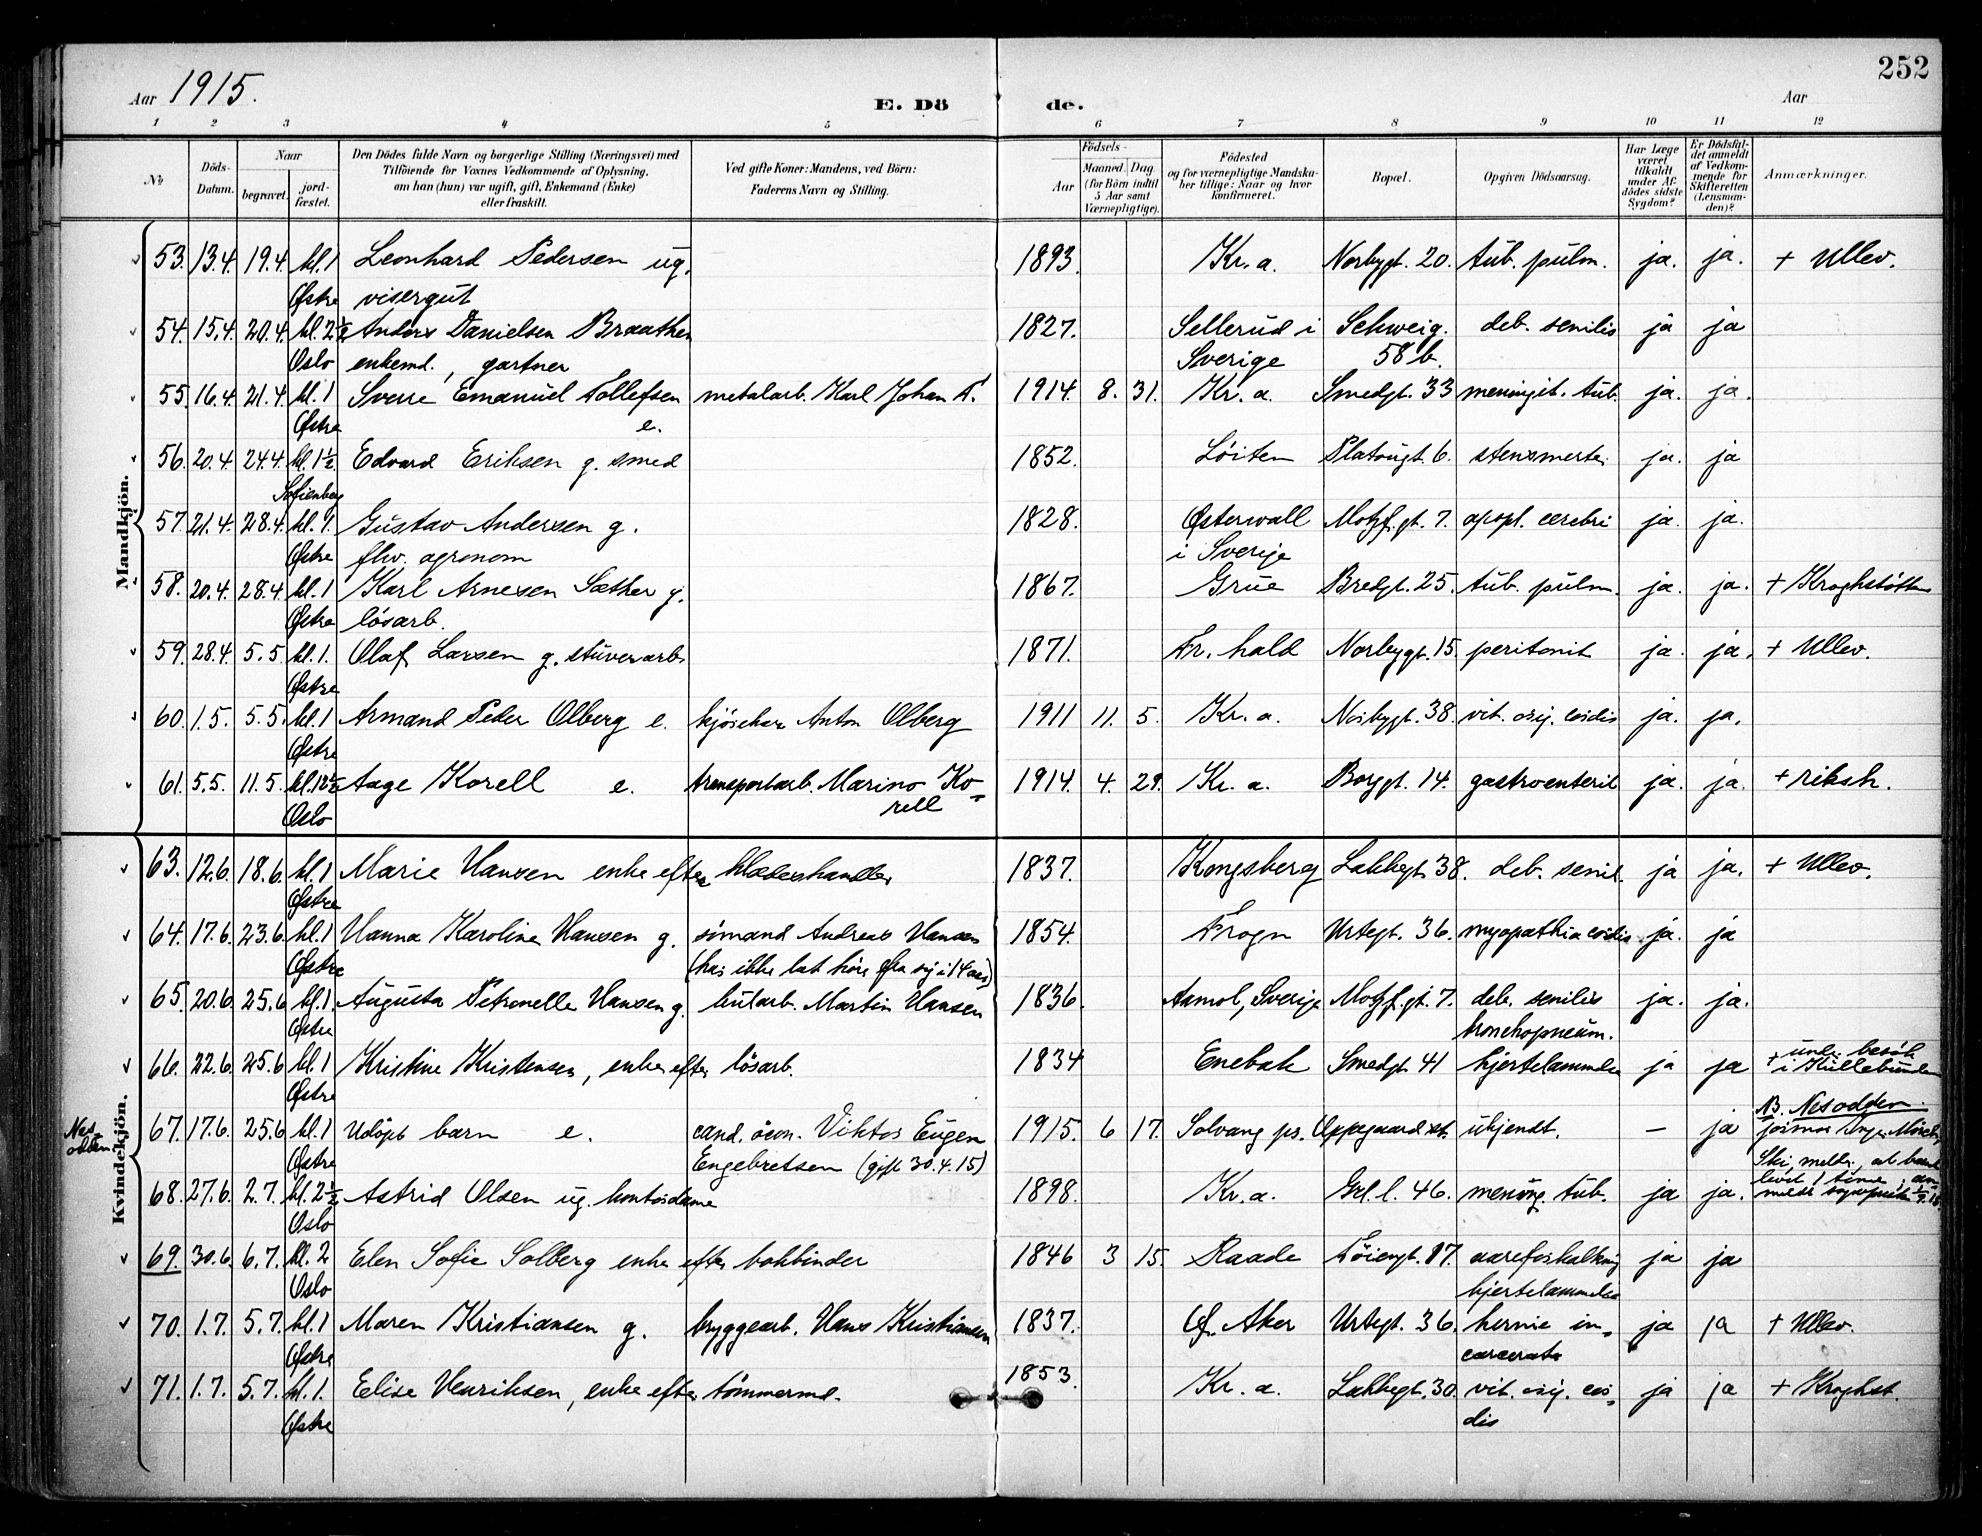 252
Aar 1915.
E. Dö de.
Aar
1 2 3 4 5 6 7 8 9 10 11 12
No
Döds-Datum.
Naar begravet. jord-fæstet.
Den Dödes fulde Navn og borgerlige Stilling (Næringsvei) med
Tilföiende for Voxnes Vedkommende af Oplysning,
om han (hun) var ugift, gift, Enkemand (Enke)
eller fraskilt.
Ved gifte Koner: Mandens, ved Börn:
Faderens Navn og Stilling.
Födsels-
Aar Maaned. Dag.
(for Börn indtil 5 Aar samt Værnepligtige).
Födested
og for værnepligtige Mandska-
ber tillige: Naar og hvor
konfirmeret.
Bopæl.
Opgiven Dödsaarsag.
Har Læge været tilkaldt under Af-dödes sidste Sygdom?
Er Dödsfal-det anmeldt af Vedkom-mende for Skifteretten (Lensman-den)?
Anmærkninger.
Mandkjön.
53. 13.4. 19.4. kl.1 Leonhard Pedersen ug. 1893. Kr.a. Norbygt. 20. tub. pulm. ja. ja. + Ullev.
Østre visergut
54. 15.4. 20.4. kl. 2½ Anders Danielsen Braathen 1827. Sellerud i Schweig. deb. senilis ja ja
Oslo enkemd., gartner Sverige 58 b.
55. 16.4. 21.4. kl.1 Sverre Emanuel Tollefsen metalarb. Karl Johan T. 1914. 8. 31. Kr.a. Smedgt. 33 meningit. tub. ja. ja.
Østre e.
56. 20.4. 24.4. kl. 1½ Edvard Eriksen g. smed 1852. Löiten Platougt. 6. ja. ja
Sofienberg
57. 21.4. 28.4. kl. 1. Gustav Andersen g. 1828. Østerwall Motzf. gt. 7. apopl. cerebri ja. ja.
Østre fhv. agronom i Sverige
58. 20.4. 28.4. kl.1 Karl Arnesen Sæther g. 1867. Grue Bredgt. 25. tub. pulm. ja. ja. + Kroghstötten
Østre lösarb.
59. 28.4. 5.5. kl. 1. Olaf Larsen g. stuverarb. 1871. Fr.hald Norbygt. 15. peritonit ja. ja. + Ullev.
Østre
60. 1.5. 5.5. kl.1 Armand Peder Olberg e. Anton Olberg 1911 11. 5. Kr.a. Norbygt. 38. vit. org. cordis ja. ja.
Østre
61. 5.5. 11.5. kl. 12½ Aage Korell e. transportarb. Marino Ko- 1914. 4. 29. Kr.a. Borggt. 14. gastroenterit ja. ja. + riksh.
Oslo rell
Kvindekjön.
63. 12.6. 18.6. kl.1 Marie Hansen enke efter klædeshandler 1837. Kongsberg Lakkegt. 38. deb. senil. ja ja. + Ullev.
Østre
64. 17.6. 23.6. kl.1 Hanna Karoline Hansen g. sömand Andreas Hansen 1854. Frogn Urtegt. 36. myopathia cordis ja. ja
Østre (har ikke lat höre fra sig i 14 aar)
65. 20.6. 25.6 kl.1. Augusta Petronelle Hansen g. Martin Hansen 1836. Aamol, Sverige Motzf. gt. 7. deb. senilis ja. ja.
Østre bronchopneum.
66. 22.6. 25.6 kl.1 Kristine Kristensen, enke efter lösarb. 1834 Enebak Smedgt. 41 hjertelammelse ja ja + under besök
Østre i Hullebunden
Nes-
odden
67. 17.6. 25.6 kl.1 Udöpt barn e. cand. öcon. Viktor Eugen 1915. 6 17. Solvang pr. Oppegaard st. ukjendt. — ja NB. Nesodden.
Østre Engebretsen (gift 30.4.15) jormor Inga Mörch,
Ski, melder, at barnet
68. 27.6. 2.7. kl. 2½ Astrid Olsen ug. kontordame 1898. Kr.a. Grl. l. 46. mening. tub. ja ja. levet 1 time,
Oslo
69. 30.6. 6.7. kl. 2 Elen Sofie Solberg enke efter bokbinder 1846 3 15. Raade Töiengt. 17. aareforkalkning ja ja
Oslo hjertelammelse
70. 1.7. 5.7. kl.1 Maren Kristiansen g. bryggearb. Hans Kristiansen 1837. Ø. Aker Urtegt. 36. hernie in- ja ja + Ullev.
Østre carcerata
71. 1.7. 5.7. kl. 1. Elise Henriksen, enke efter tömmermd. 1853. Kr.a. Lakkegt. 30. vit. org. cor- ja ja + Kroghst.
Østre dis